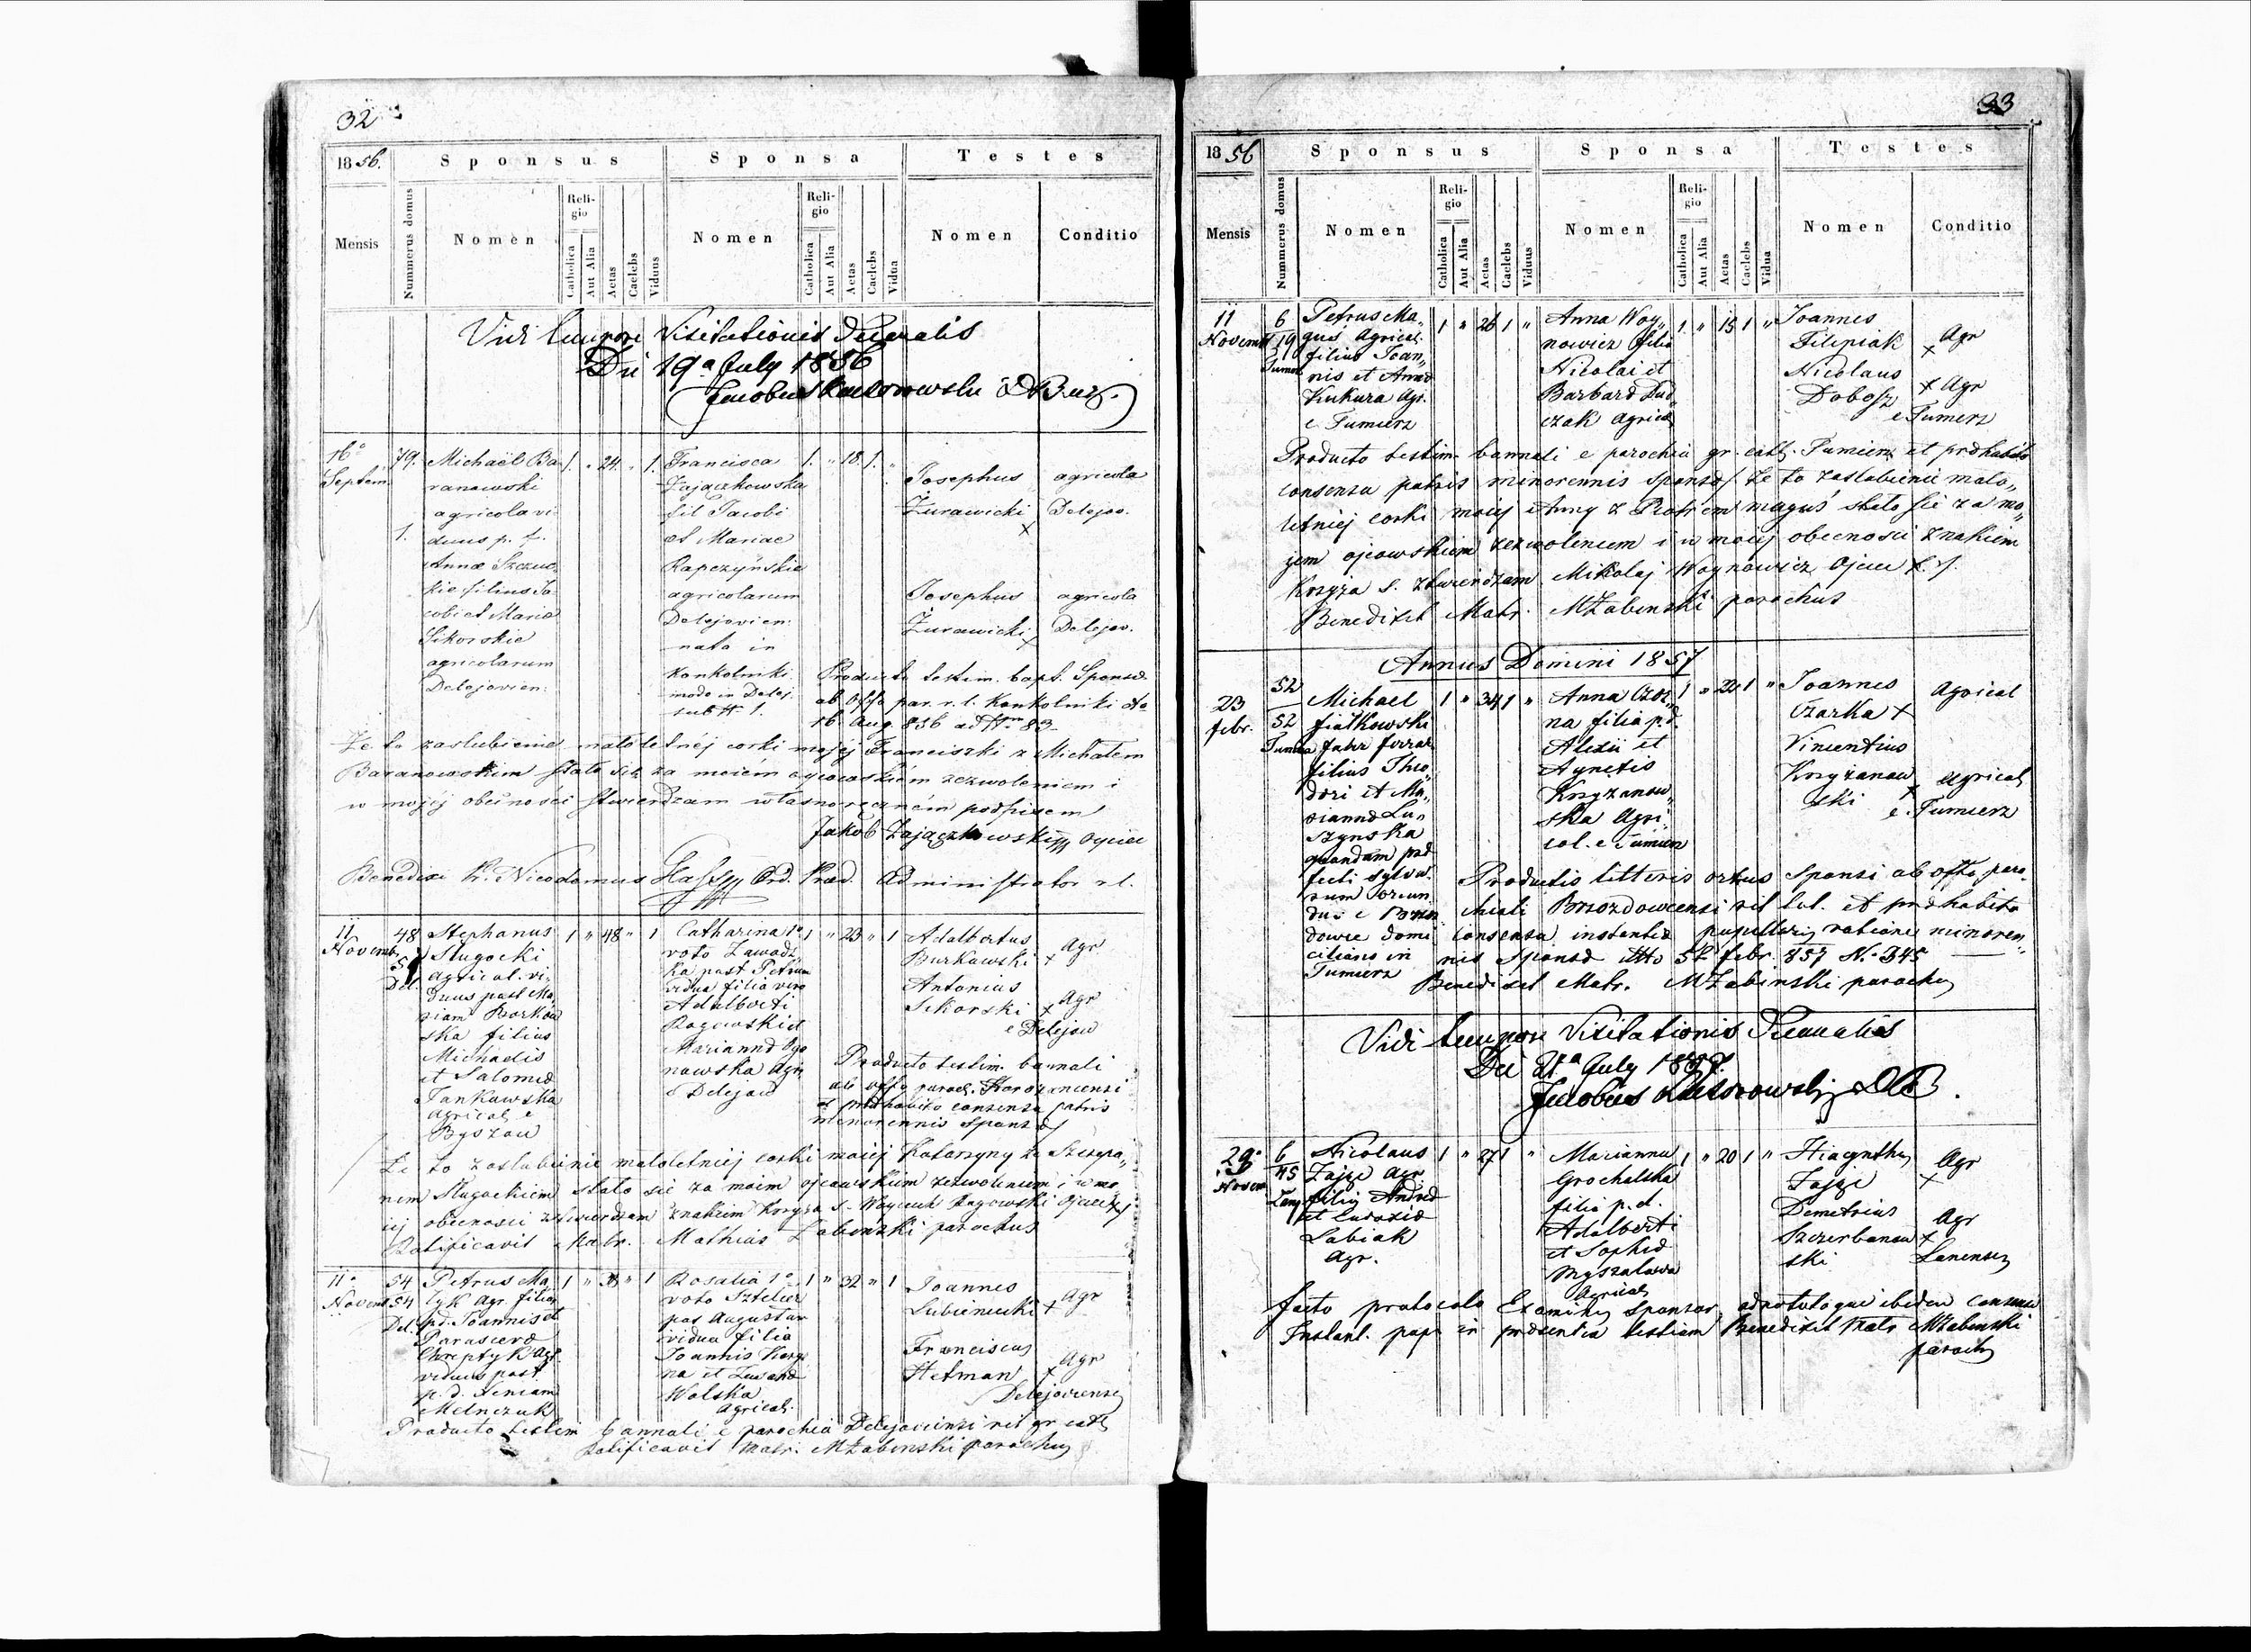 32
1856.
Sponsus
Sponsa
Testes
Mensis
Nummerus domus
Nomen
Religio
Catholica
Aut Alia
Aetas
Caelebs
Viduus
Nomen
Religio
Catholica
Aut Alia
Aetas
Caelebs
Vidua
Nomen
Conditio
Vidi tempore Visitationis Decanalis
Die 19a July 1856
16o
Septem.
79.
1.
Michaël Ba
ranowski
agricola vi
duus p. f.
Annae Szczuc
kie filius Ja
cobi et Mariae
Sikorskie
agricolarum
Delejovien:
1. " 24. " 1.
Francisca
Zajączkowska
fil Jacobi
et Mariae
Rapczyńskie
agricolarum
Delejovien:
nata in
Konkolniki
modo in Delej.
sub N. 1.
1. " 18. 1. "
Josephus
Żurawicki
x
agricola
Delejov.
Josephus
Żurawicki
x
agricola
Delejov.
Producto testim. bapt. Sponsae
ab Offo par. r. l. Konkolniki dto
16 Aug. 856 ad Nrm 83
Że to zaslubienie małoletnéj corki mojéj Franciszki z Michałem
Baranowskim stało się za moiém ojcowskiém zezwoleniem i
w mojéj obecności stwierdzam własnoręczném podpisem
Jakób Zajączkowski Ojciec
Benedixi Fr. Nicodemus Ord. Praed. Administrator r. l.
11
Novemb.
48
Del.
Stephanus
Ługocki
agricol. vi
duus post Ma
riam Borkow
ska filius
Michaelis
et Salomeae
Jankowska
Agricol. e
Byszow
1 " 48 " 1
Catharina 1o
voto Zawadz
ka post Petrum
vidua filia vero
Adalberti
Rogowski et
Mariannae Ogo
nowska Agr.
e Delejow
1 " 23 " 1
Adalbertus
Burkowski x
Agr
Antonius
Sikorski x
Agr
e Delejow
Producto testim. bannali
ab offo paroch.
et praehabito consensu patris
minorennis sponsae
Że to zaslubienie małoletniej corki mojej Katarzyny ze Szczepa„
nem Ługockiem stało się za moim ojcowskiem zezwoleniem i w mo
jej obecnosci ztwierdzam znakiem Krzyża S. Wojciech Rogowski Ojciec
Ratificavit Matr. Mathias Żabinski parochus
11o
Novemb
54
54
Del.
Petrus Ma
łyk Agr. filius
pd. Joannis et
Parascevae
Chreptyk Agr.
viduus post
p. d. Xeniam
Melnczuk
1 " 33 " 1
Rosalia 1o
voto Sztelier
pos Augustum
vidua filia
Joannis Korzy
na et
Wolska
Agricol.
1 " 32 " 1
Joannes
Lubieniecki x
Agr
Franciscus
Hetman x
Agr
Delejoviensis
Producto testim bannali e parochia Delejoviensi rit gr cath
Ratificavit Matri. MŻabinski parochus
33
1856
Sponsus
Sponsa
Testes
Mensis
Nummerus domus
Nomen
Religio
Catholica
Aut Alia
Aetas
Caelebs
Viduus
Nomen
Religio
Catholica
Aut Alia
Aetas
Caelebs
Vidua
Nomen
Conditio
11
Novemb
6
19
Tumer
Petrus Ma„
guś Agricol.
filius Joan„
nis et Annae
Kukura Agr.
e Tumierz
1 " 26 1 "
Anna Woy„
nowicz filia
Nicolai et
Barbarae Dud„
czak Agricol.
1 " 15 1 "
Joannes
Filipiak x
Agr
Nicolaus
Dobosz x
Agr
e Tumierz
Producto testim. bannali e parochia gr. cath. Tumierz et praehabito
consensu patris minorennis sponsae. Że to zaslubienie mało„
letniej corki mojej Anny z Piotrem maguś stało się za mo„
jem ojcowskiem zezwoleniem i w mojej obecnosci znakiem
Krzyża S. ztwierdzam Mikolaj Woynowicz Ojciec
Benedixit Matr. MŻabinski parochus
Annus Domini 1857
23
febr.
52
52
Tumier
Michael
Fialkowski
faber ferrar
filius Theo„
dori et Ma„
riannae Lu„
szynska
quondam prae
fecti sylva
rum
domi
cilians in
Tumierz
1 " 34 1 "
Anna Czor„
na filia p.d.
Alexii et
Agnetis
Krzyżanow„
ska Agri„
col. e Tumierz
1 " 22 1 "
Joannes
Czarka x
Agricol
Vincentius
Krzyżanow
ski x
Agricol
e Tumierz
Productis litteris ortus Sponsi ab offo paro„
chiali Brzozdowcensi rit lat. et praehabito
consensu instantiae pupillaris ratione minoren„
nis Sponsae dtto 5t febr. 857 N. 345
Benedixit Matr. MŻabinski parochus
Vidi tempore Visitationis Decanalis
Die 21a July 1857.
29
Novem
6
45
Nicolaus
Zając Agr
filius Andreae
et Eudoxiae
Labiak
Agr.
1 " 27 1 "
Marianna
Grochalska
filia p.d.
Adalberti
et Sophiae
Myszalowa
Agricol.
1 " 20 1 "
Hiacynthus
Zając x
Agr
Demetrius
Szczerbanow
ski x
Agr
Lanensis
facto protocolo Examinis Sponsor. adnotatoque ibidem consensu
Instant. pup. in praesentia testium Benedixit Matr MŻabinski
parochus